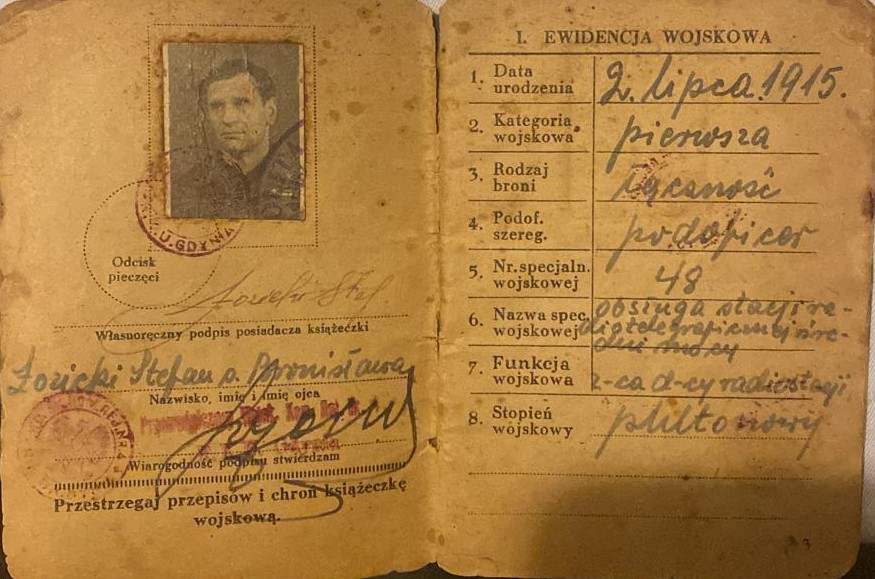 U. GDYNIA
Odcisk
pieczęci
Własnoręczny podpis posiadacza książeczki
Łozicki Stefan o. Bronisława
Nazwisko, imię i imię ojca
Wiarogodność podpisu stwierdzam
Przestrzegaj przepisów i chroń książeczkę
wojskową.
I. EWIDENCJA WOJSKOWA
1. Data urodzenia 2. lipca 1915.
2. Kategoria wojskowa pierwsza
3. Rodzaj broni łączność
4. Podof. szereg. podoficer
5. Nr. specjaln. wojskowej 48
6. Nazwa spec. wojskowej obsługa stacji ra-
diotelegraficznej śre-
dniej mocy
7. Funkcja wojskowa z-ca d-cy radiostacji
8. Stopień wojskowy plutonowy
3